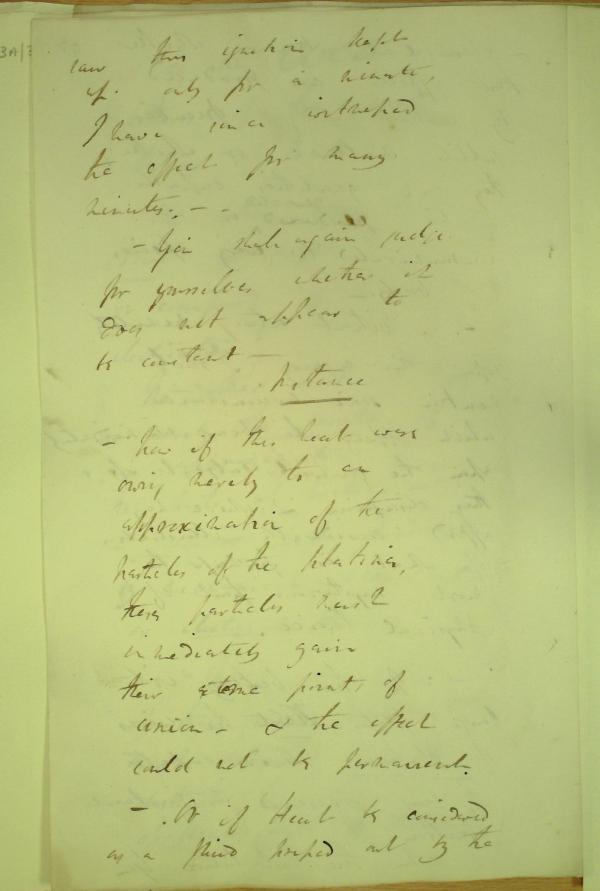 3A/3
saw this ignition kept
up. only for a minute,
I have since witnessed
the effect for many
minutes. — -
- You shall again judge
for yourselves whether it
does not appear to
be constant —
Instance
- Now if this heat were
owing merely to an
approximation of the
particles of the platina,
these particles must
immediately gain
their extreme points of
union - & the effect
could not be permanent.
- . Or if Heat be considered
as a fluid forced out by the